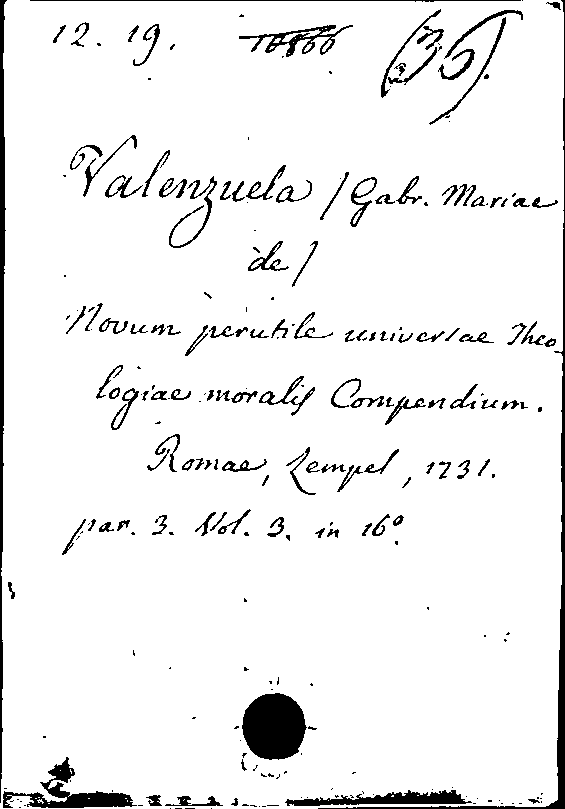 12. 19. 10866 (36).
Valenzuela / Gabr. Mariae
de /
Novum perutile universae Theo-
logiae moralis Compendium.
Romae, Zempel, 1731.
par. 3. Vol. 3. in 16°.